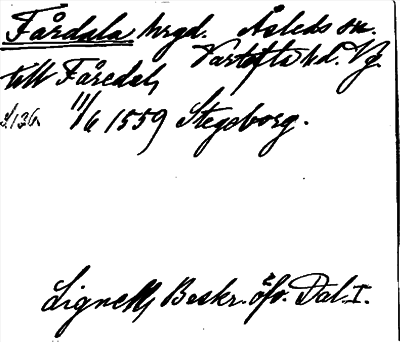 Fårdala hrgd. Åsleds sn.
Vartofta hd. Vg.
till Faredal,
s. 136. 11/6 1559 Stegeborg.
Lignell, Beskr. öfv. Dal. I.